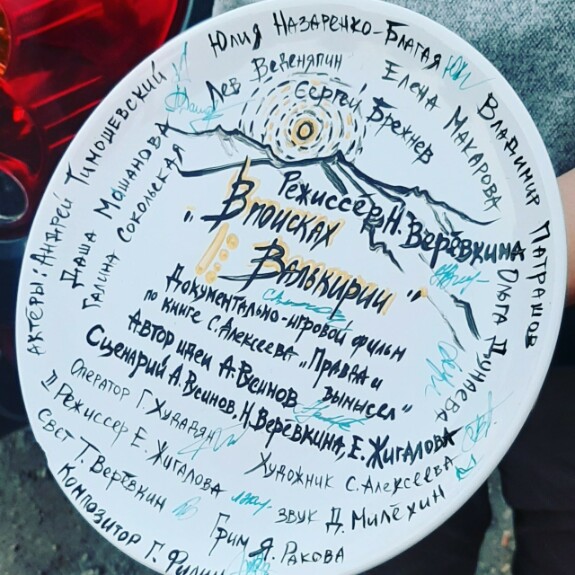 Актёры: Андрей Тимошевский
Юлия Назаренко-Благая
Владимир Патрашов
Даша Мошанова
Лев Веденяпин
Елена Макарова
Галина Сокольская
Сергей Брежнев
Ольга Дунаева
Режиссёр Н. Верёвкина
"В поисках
Валькирии"
Документально-игровой фильм
по книге С. Алексеева "Правда и
вымысел"
Автор идеи А. Вусинов
Сценарий А. Вусинов, Н. Верёвкина, Е. Жигалова
Оператор Г. Худадян
Художник С. Алексеева
II Режиссер Е. Жигалова
Свет Т. Верёвкин
Звук Д. Милёхин
Грим Я. Ракова
Композитор Г. Филин